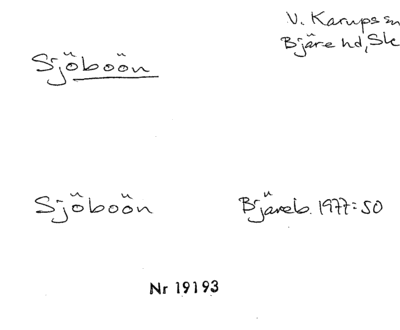 V. Karups sn
Bjäre hd, Sk
Sjöboön
Sjöboön Bjäreb. 1977:50
Nr 19193